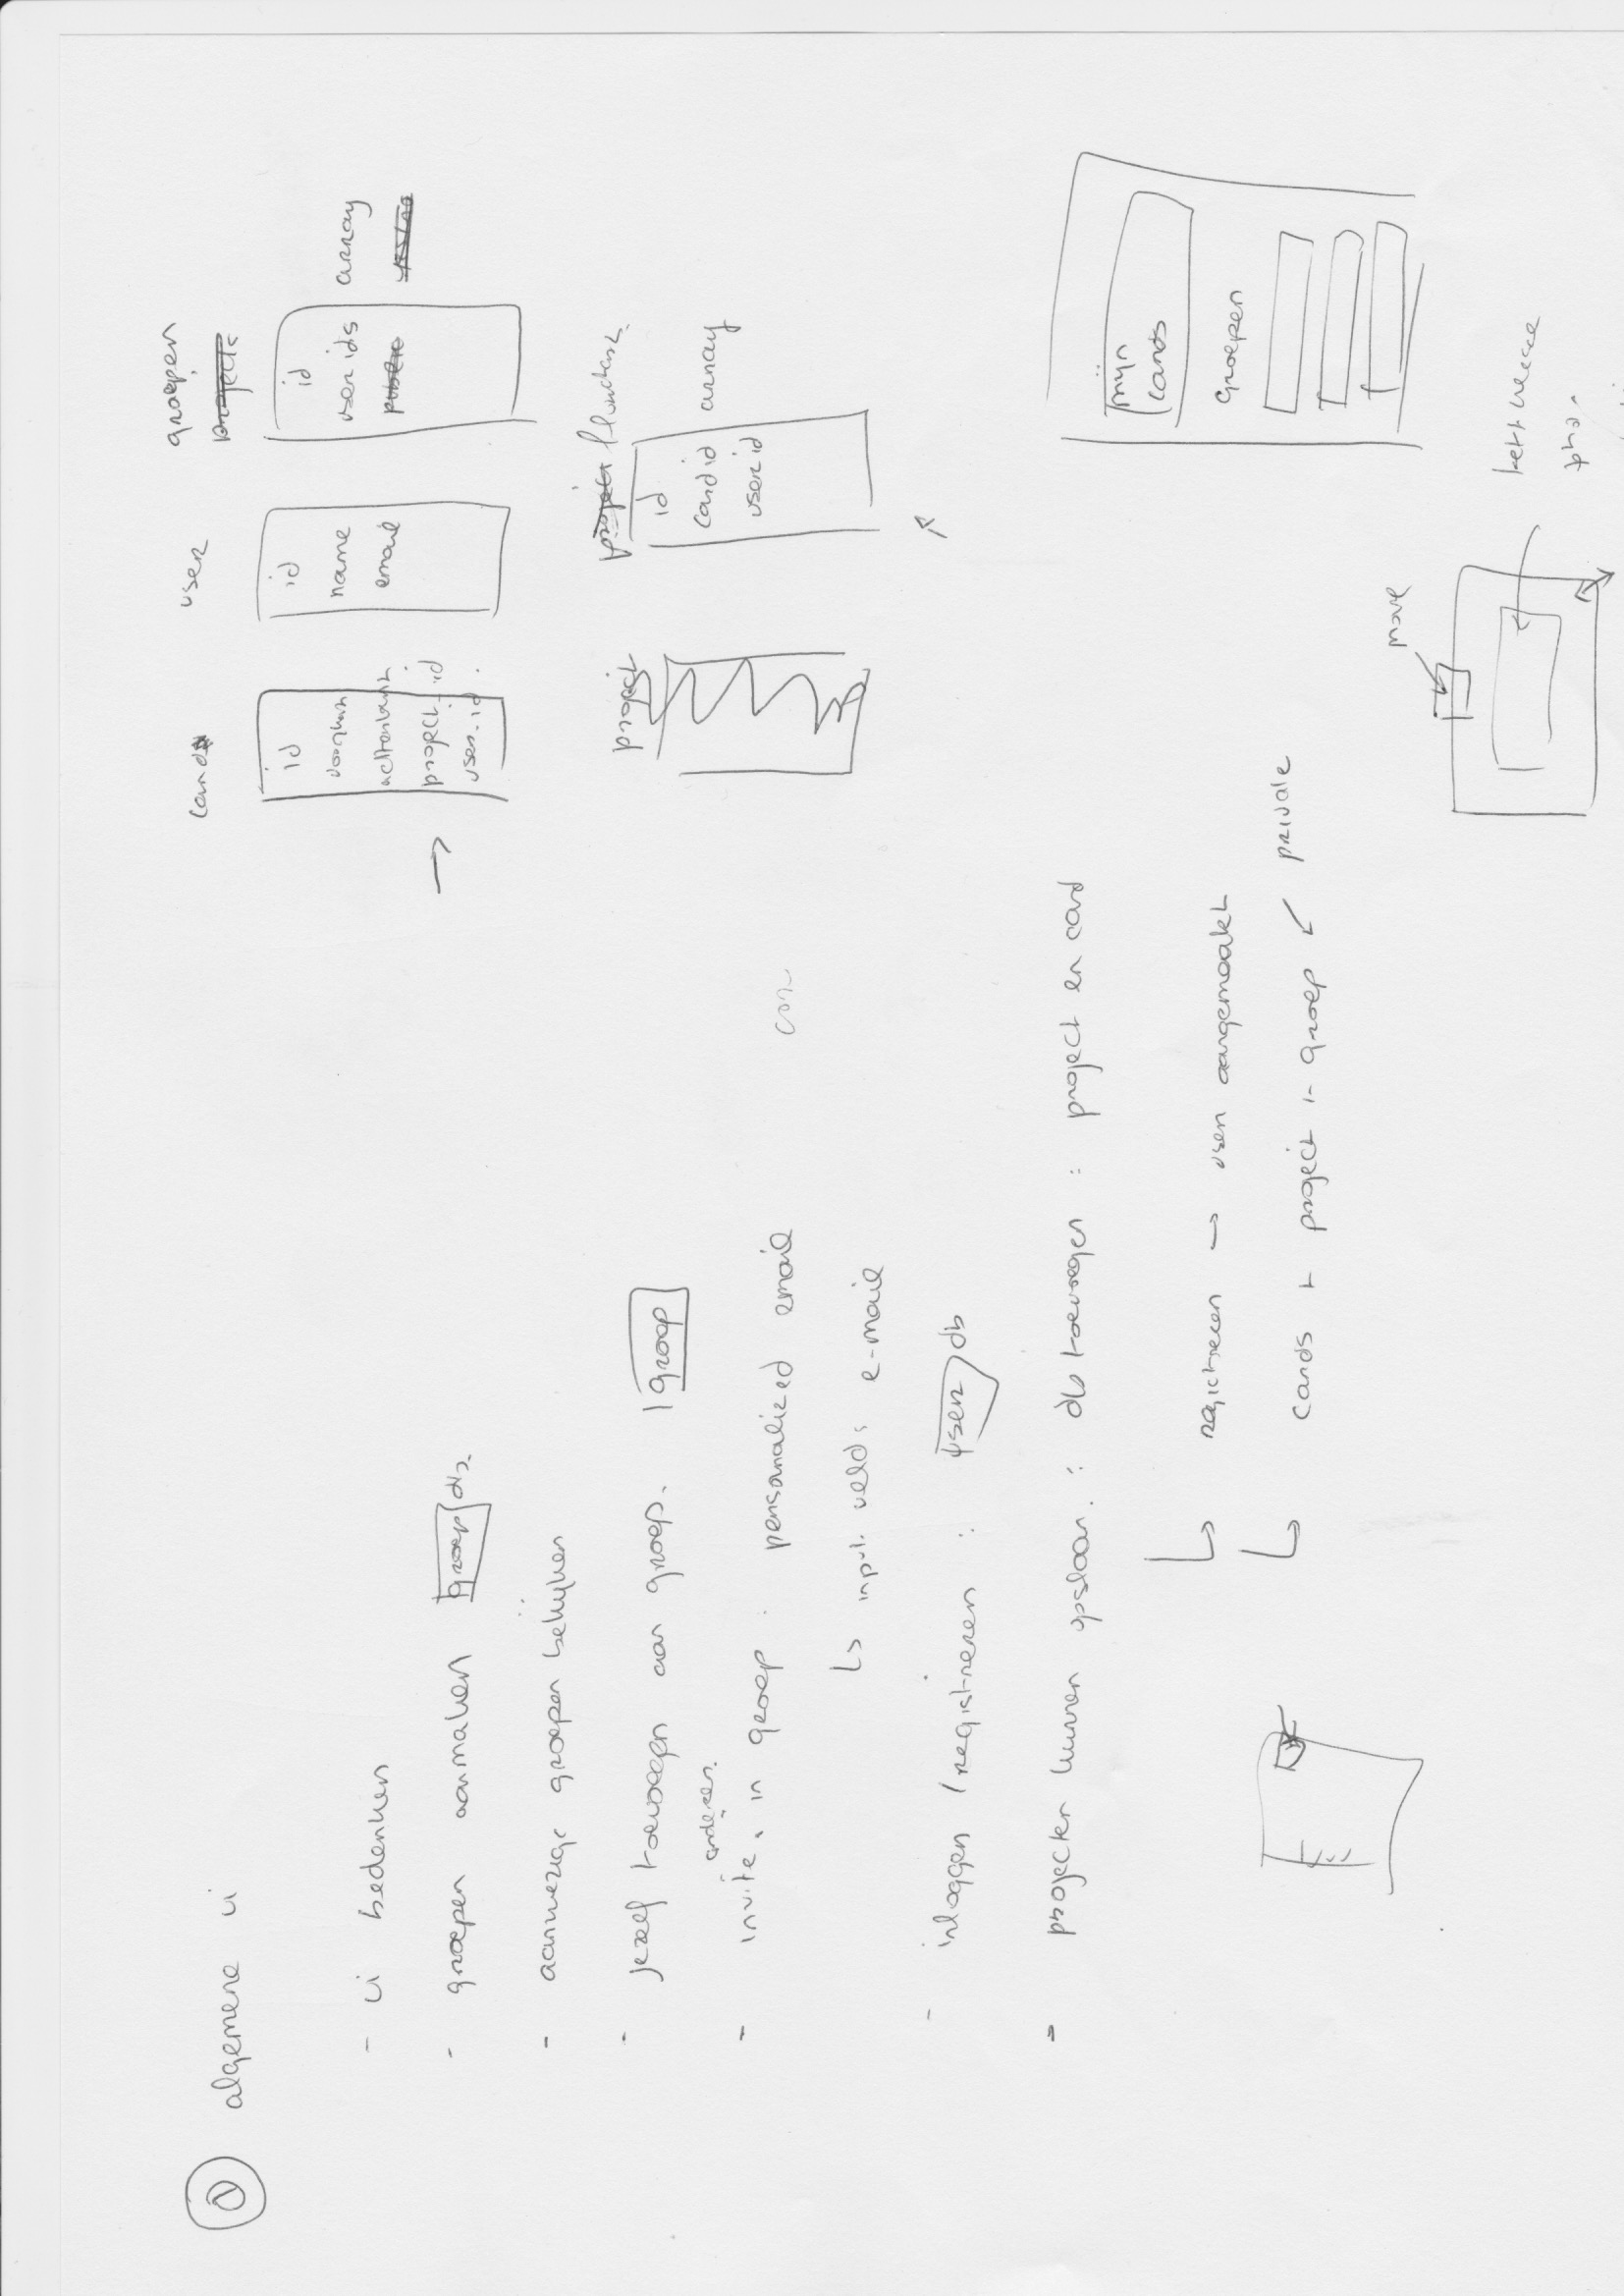 ① algemene ui
- ui bedenken
- groepen aanmaken groep db.
- aanwezige groepen bekijken
- jezelf toevoegen aan groep. groep
anderen.
- invite in groep : personalized email
↳ input veld: e-mail
- inloggen / registreren : user db
- projecten kunnen opslaan. : db toevoegen : project en card
↳ registreren → user aangemaakt
↳ cards + project + groep ↙ private
card
id
voorkant
achterkant
→ project_id
user_id
user
id
name
email
groepen
projects
id
user ids array
public
project
project
id
card id array
user id
con
mijn
cards
Groepen
move